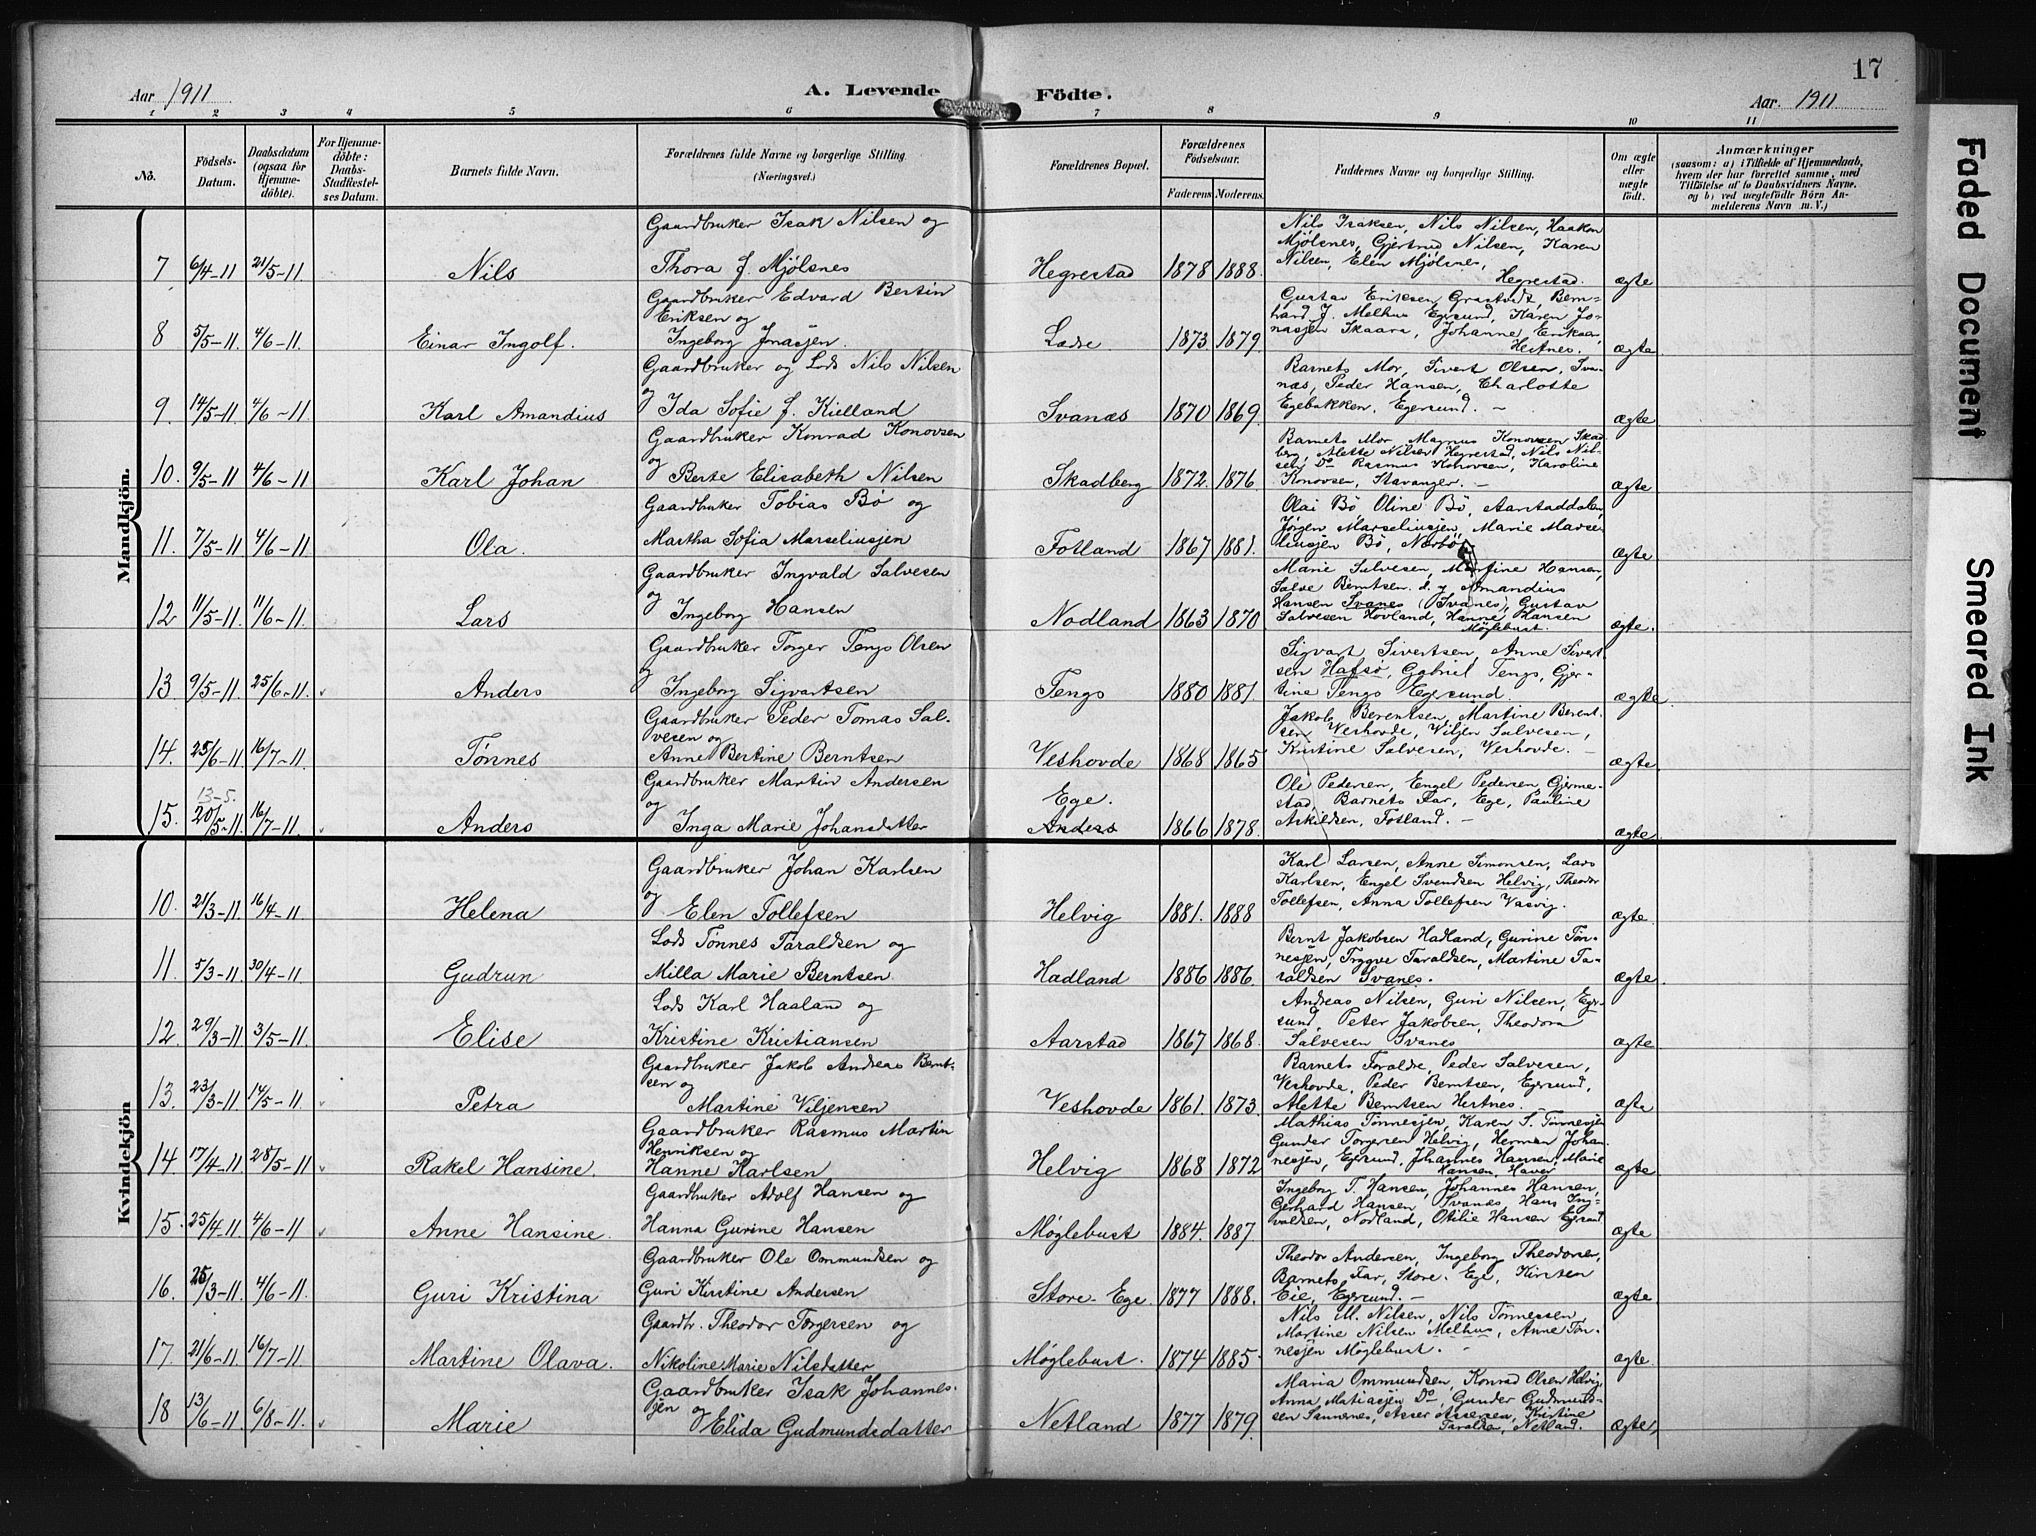 17
Aar 1911
A. Levende Födte.
Aar. 1911
1 2 3 4 5 6 7 8 9 10 11
No.
Födsels-Datum.
Daabsdatum (ogsaa for Hjemmedöbte).
For Hjemmedöbte: Daabs-Stadfæstelses Datum.
Barnets fulde Navn.
Forældrenes fulde Navne og borgerlige Stilling. (Næringsvei.)
Forældrenes Bopæl.
Forældrenes Födselsaar.
Faderens Moderens
Faddernes Navne og borgerlige Stilling.
Om ægte eller uægte födt.
Anmærkninger
(saasom: a) i Tilfælde af Hjemmedaab,
hvem der har forrettet samme, med
Tilföielse af to Daabsvidners Navne.
og b) ved uægtefödte Börn An-
melderens Navn m. V.)
Mandkjön.
7 6/4-11 21/5-11 Nils
Gaardbruker Isak Nilsen og
Thora f. Mjølsnes
Hegrestad 1878 1888.
Nils Isaksen, Nils Nilsen, Haakon
Mjølsnes, Gjertrud Nilsen, Karen
Nilsen, Elen Mjølsnes,
Hegrestad.
ægte
8 5/5-11. 4/6-11 Einar Ingolf.
Gaardbruker Edvard Bertin
Eriksen og
Ingeborg Jonasjen.
Ladse 1873 1879.
Gustav Eriksen Grastvedt, Bern-
hard J. Melhus Egersund, Karen Jo-
nasjen Skaara, Johanne Eriksen,
Hestnes.
ægte
9. 14/5-11. 4/6-11. Karl Amandius
Gaardbruker og Lods Nils Nilsen
og
Ida Sofie f. Kielland
Svanæs 1870 1869.
Barnets Mor, Sivert Olsen, Sva-
næs, Peder Hansen, Charlotte
Egebakken, Egersund. -
ægte
10. 9/5-11 4/6-11. Karl Johan
Gaardbruker Konrad Konovsen
og
Berte Elisabeth Nilsen
Skadberg 1872. 1876.
Barnets Mor, Magnus Konovsen Skad-
berg, Alette Nilsen Hegrestad, Nils Nil-
sen Do Rasmus Konovsen, Karoline
Konovsen, Stavanger. -
ægte
11. 7/5-11 4/6-11 Ola.
Gaardbruker Tobias Bø og
Martha Sofia Marseliusjen
Fotland 1867 1881.
Olai Bø, Oline Bø, Aarstaddalen,
Jørgen Marseliusjen, Marie Marse-
liusjen Bø, Nærbø
ægte
12 11/5-11. 11/6-11. Lars
Gaardbruker Ingvald Salvesen
og
Ingeborg Hansen
Nodland 1863 1870
Marie Salvesen, Martine Hansen,
Salve Berntsen d. y. Amandius
Hansen Svanes (Svanes), Gustav
Salvesen Hovland, Hanne Hansen
Møglebust.
ægte.
13 9/5-11. 25/6-11. Anders
Gaardbruker Torger Tengs Olsen
og
Ingeborg Sigvartsen
Tengs 1880 1881.
Sigvart Sivertsen, Anne Sivert-
sen Hafsø, Gabriel Tengs, Gjer-
tine Tengs Egersund.
ægte.
14. 25/6-11. 16/7-11. Tønnes
Gaardbruker Peder Tomas Sal-
vesen og
Anne Bertine Berntsen
Veshovde 1868 1865
Jakob Berentsen, Martine Berent-
sen Veshovde, Wiljen Salvesen,
Kristine Salvesen, Veshovde. -
ægte.
13-5.
15. 20/5-11. 16/7-11. Anders
Gaardbruker Martin Andersen
og
Inga Marie Johansdatter
Ege.
Anders
1866 1878.
Ole Pedersen, Engel Pedersen Gjerme-
stad, Barnets Far, Ege, Pauline
Askildsen, Fotland. -
ægte.
Kvindekjön
10. 21/3-11. 16/4-11 Helena
Gaardbruker Johan Karlsen
og
Elen Tollefsen
Helvig 1881. 1888
Karl Larsen, Anne Simonsen, Lars
Karlsen, Engel Svendsen Helvig, Theodor
Tollefsen, Anna Tollefsen Vasvig.
ægte
11. 5/3-11 30/4-11 Gudrun
Lods Tønnes Taraldsen og
Milla Marie Berntsen.
Hadland 1886 1886.
Bernt Jakobsen Hadland, Gurine Tøn-
nesjen, Tryggve Taraldsen, Martine Ta-
raldsen Svanes.
ægte
12. 29/3-11 3/5-11. Elise
Lods Karl Haaland og
Kristine Kristiansen
Aarstad 1867 1868.
Andreas Nilsen, Guri Nilsen, Eger-
sund, Peter Jakobsen, Theodora
Salvesen Svanes
ægte
13. 23/3-11 14/5-11. Petra
Gaardbruker Jakob Andreas Bernt-
sen og
Martine Viljensen
Veshovde 1861. 1873.
Barnets Foralde, Peder Salvesen,
Veshovde, Peder Berntsen, Egersund,
Alette Berntsen Hestnes.
ægte
14 17/4-11 28/5-11 Rakel Hansine.
Gaardbruker Rasmus Martin
Henriksen og
Hanne Karlsen
Helvig 1868 1872
Mathias Tønnesjen, Karen S. Tønnesjen
Gunder Torgersen Helvig, Herman Johan-
nesjen, Egersund, Johannes Hansen, Marie
Hansen, Haver
ægte
15. 25/4-11. 4/6-11 Anne Hansine.
Gaardbruker Adolf Hansen og
Hanna Gurine Hansen
Møglebust 1884. 1887
Ingeborg T. Hansen, Johannes Hansen,
Gerhard Hansen Svanes Hans Ing-
valdsen, Nodland, Otilie Hansen Egersund
ægte
16. 25/3-11. 4/6-11. Guri Kristina
Gaardbruker Ole Ommundsen og
Guri Kirstine Andersen
Store-Ege 1877 1888.
Theodor Andersen, Ingeborg Theodorsen,
Barnets Far, Store-Ege, Kirsten
Eie, Egersund. -
ægte
17. 21/6-11. 16/7-11. Martine Olava.
Gaardb. Theodor Torgersen og
Nikoline Marie Nilsdatter
Møglebust. 1874 1885.
Nils M. Nilsen, Nils Tønnessen,
Martine Nilsen Melhus, Anne Tøn-
nesjen Møglebust. -
ægte.
18 13/6-11. 6/8-11. Marie
Gaardbruker Isak Johannes-
jen og
Elida Gudmundsdatter
Netland 1877 1879.
Maria Ommundsen, Konrad Olsen Helvig,
Anna Matiasjen Do, Gunder Gudmund-
sen Sannenes, Asser Assersen, Kristine
Taraldsen, Netland.
ægte,
Faded Document
Smeared Ink